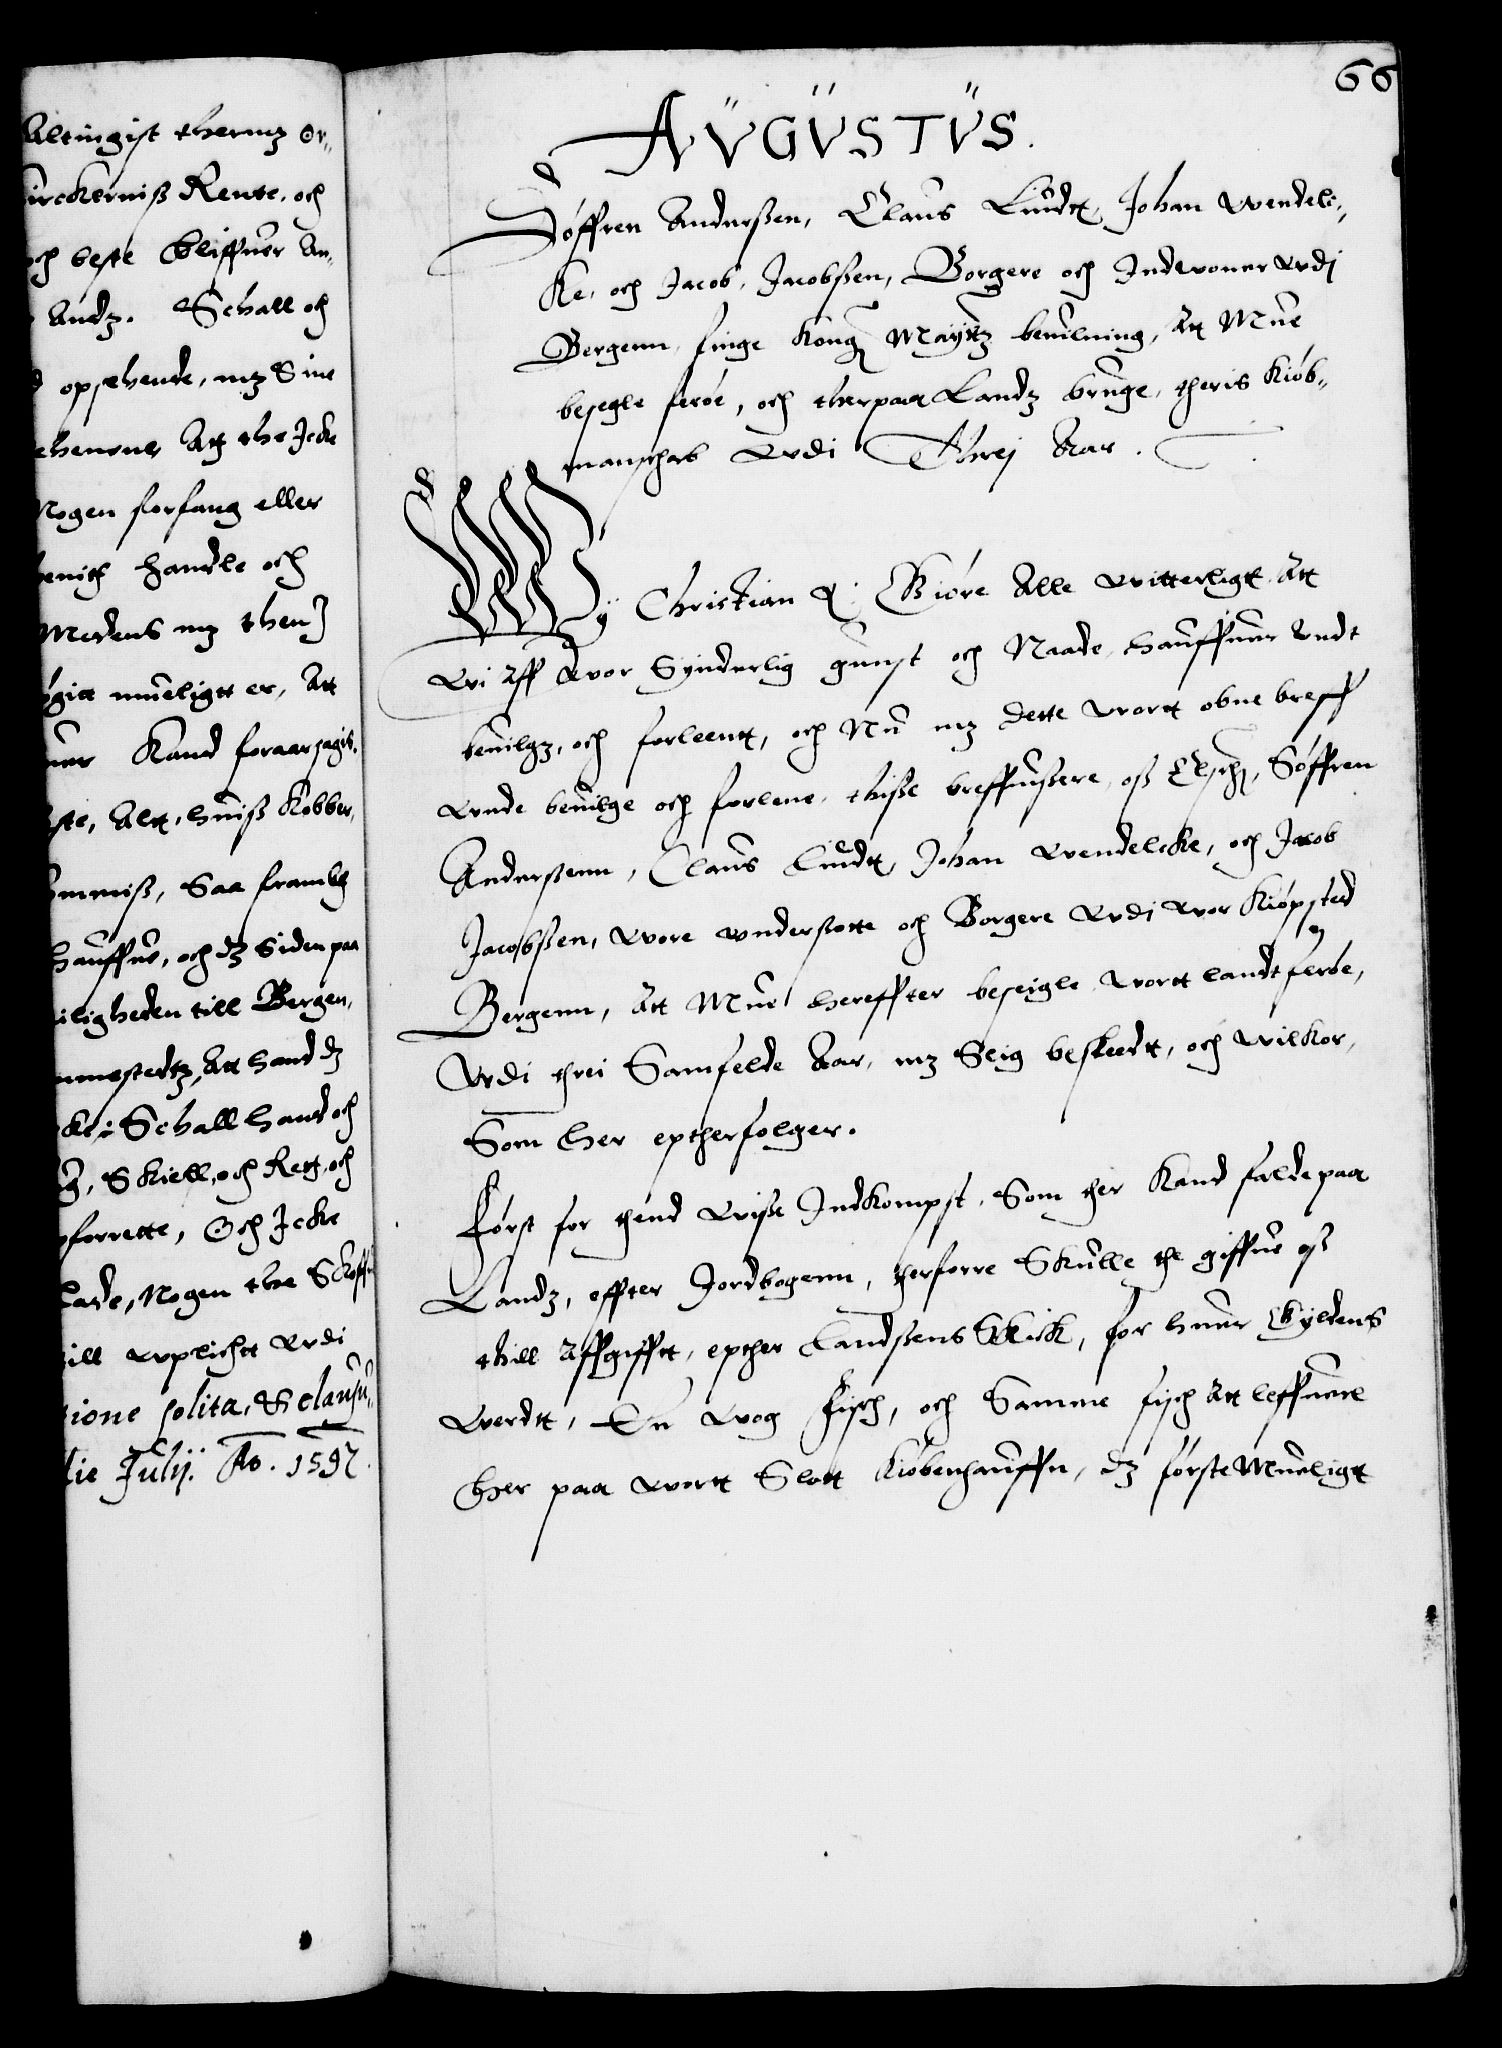 Altingist thermz or¬
Kirckerniß Rente, och
och beste bliffuer An¬
Andz. Schall och
opsehende, mz Sine
thenerne Att the Icke
Nogen forfang eller
handle och
Medens mz then
mueligtt er, Att
Kand foraarsagis.
Altt, huiß Kobber,
Saa framby
hauffue, och dz Siden paa
leiligheden till Bergen,
Att hand dz
Schall hand och
Skiell, och Rett, och
forrette, Och Icke
Nogen the Skoffue
till Wplichtt Wdi
tione solita, & clausu¬
die Julij. Ao. 1597.
66
AVGVSTVS.
Søffren Anderßen, Claus Lundtt, Johan Wendelc¬
ke, och Jacob Jacobßen, Borgere och Indwoner Wdj
Bergenn, finge Kong Maytz beuilning, Att Mue
besegle ferøe, och therpaa Landz bruge, theris Kiøb¬
manschab Wdi Threj Aar.
Wy Christian &: Giøre Alle Witterligtt Att
Wi Aff Wor Synderlig gunst och Naade, hauffuer Vndt
beuilgz, och forleent, och Nu mz dette Wortt obne breff
Wnde beuilge och forlene, thiße breffuißere, oß Elsche, Søffren
Anderßenn, Claus Lundtt, Johan Wendelcke, och Jacob
Jacobßen, Wore Vndersotte och Borgere Wdi Wor Kiøpsted
Bergenn, Att Mue hereffter beseigle Wortt landt ferøe,
Wdi threi Samfelde Aar, mz Slig beskeedt, och Wilkor,
Som her eptherfølger.
Først for thend Wiße Indkompst, Som ther Kand falde paa
Landz, effter Jordbogenn, therforre Skulle the giffue oß
thill Affgifftt, epther Landßens Skick, for huer Gyldens
Werdtt, En Wog Fisch, och Samme fisch Att leffuere
her paa Wortt Slott Kiøbenhauffn, dz første Mueligtt